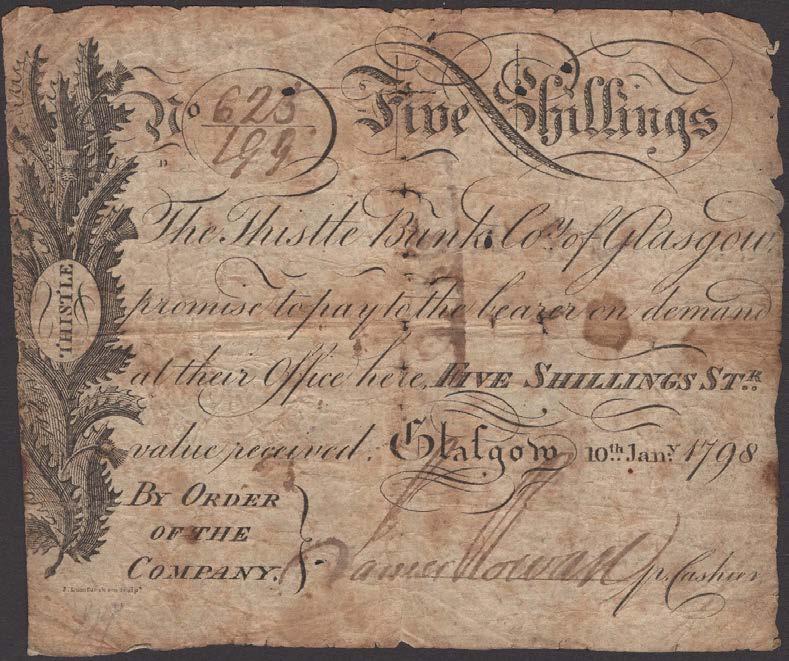 No 623/199 Five Shillings
The Thistle Bank Coy. of Glasgow
promise to pay to the bearer on demand
at their Office here, FIVE SHILLINGS STR.
value received. Glasgow 10th. Jany. 1798
BY ORDER
OF THE
COMPANY.
p. Cashier
THISTLE